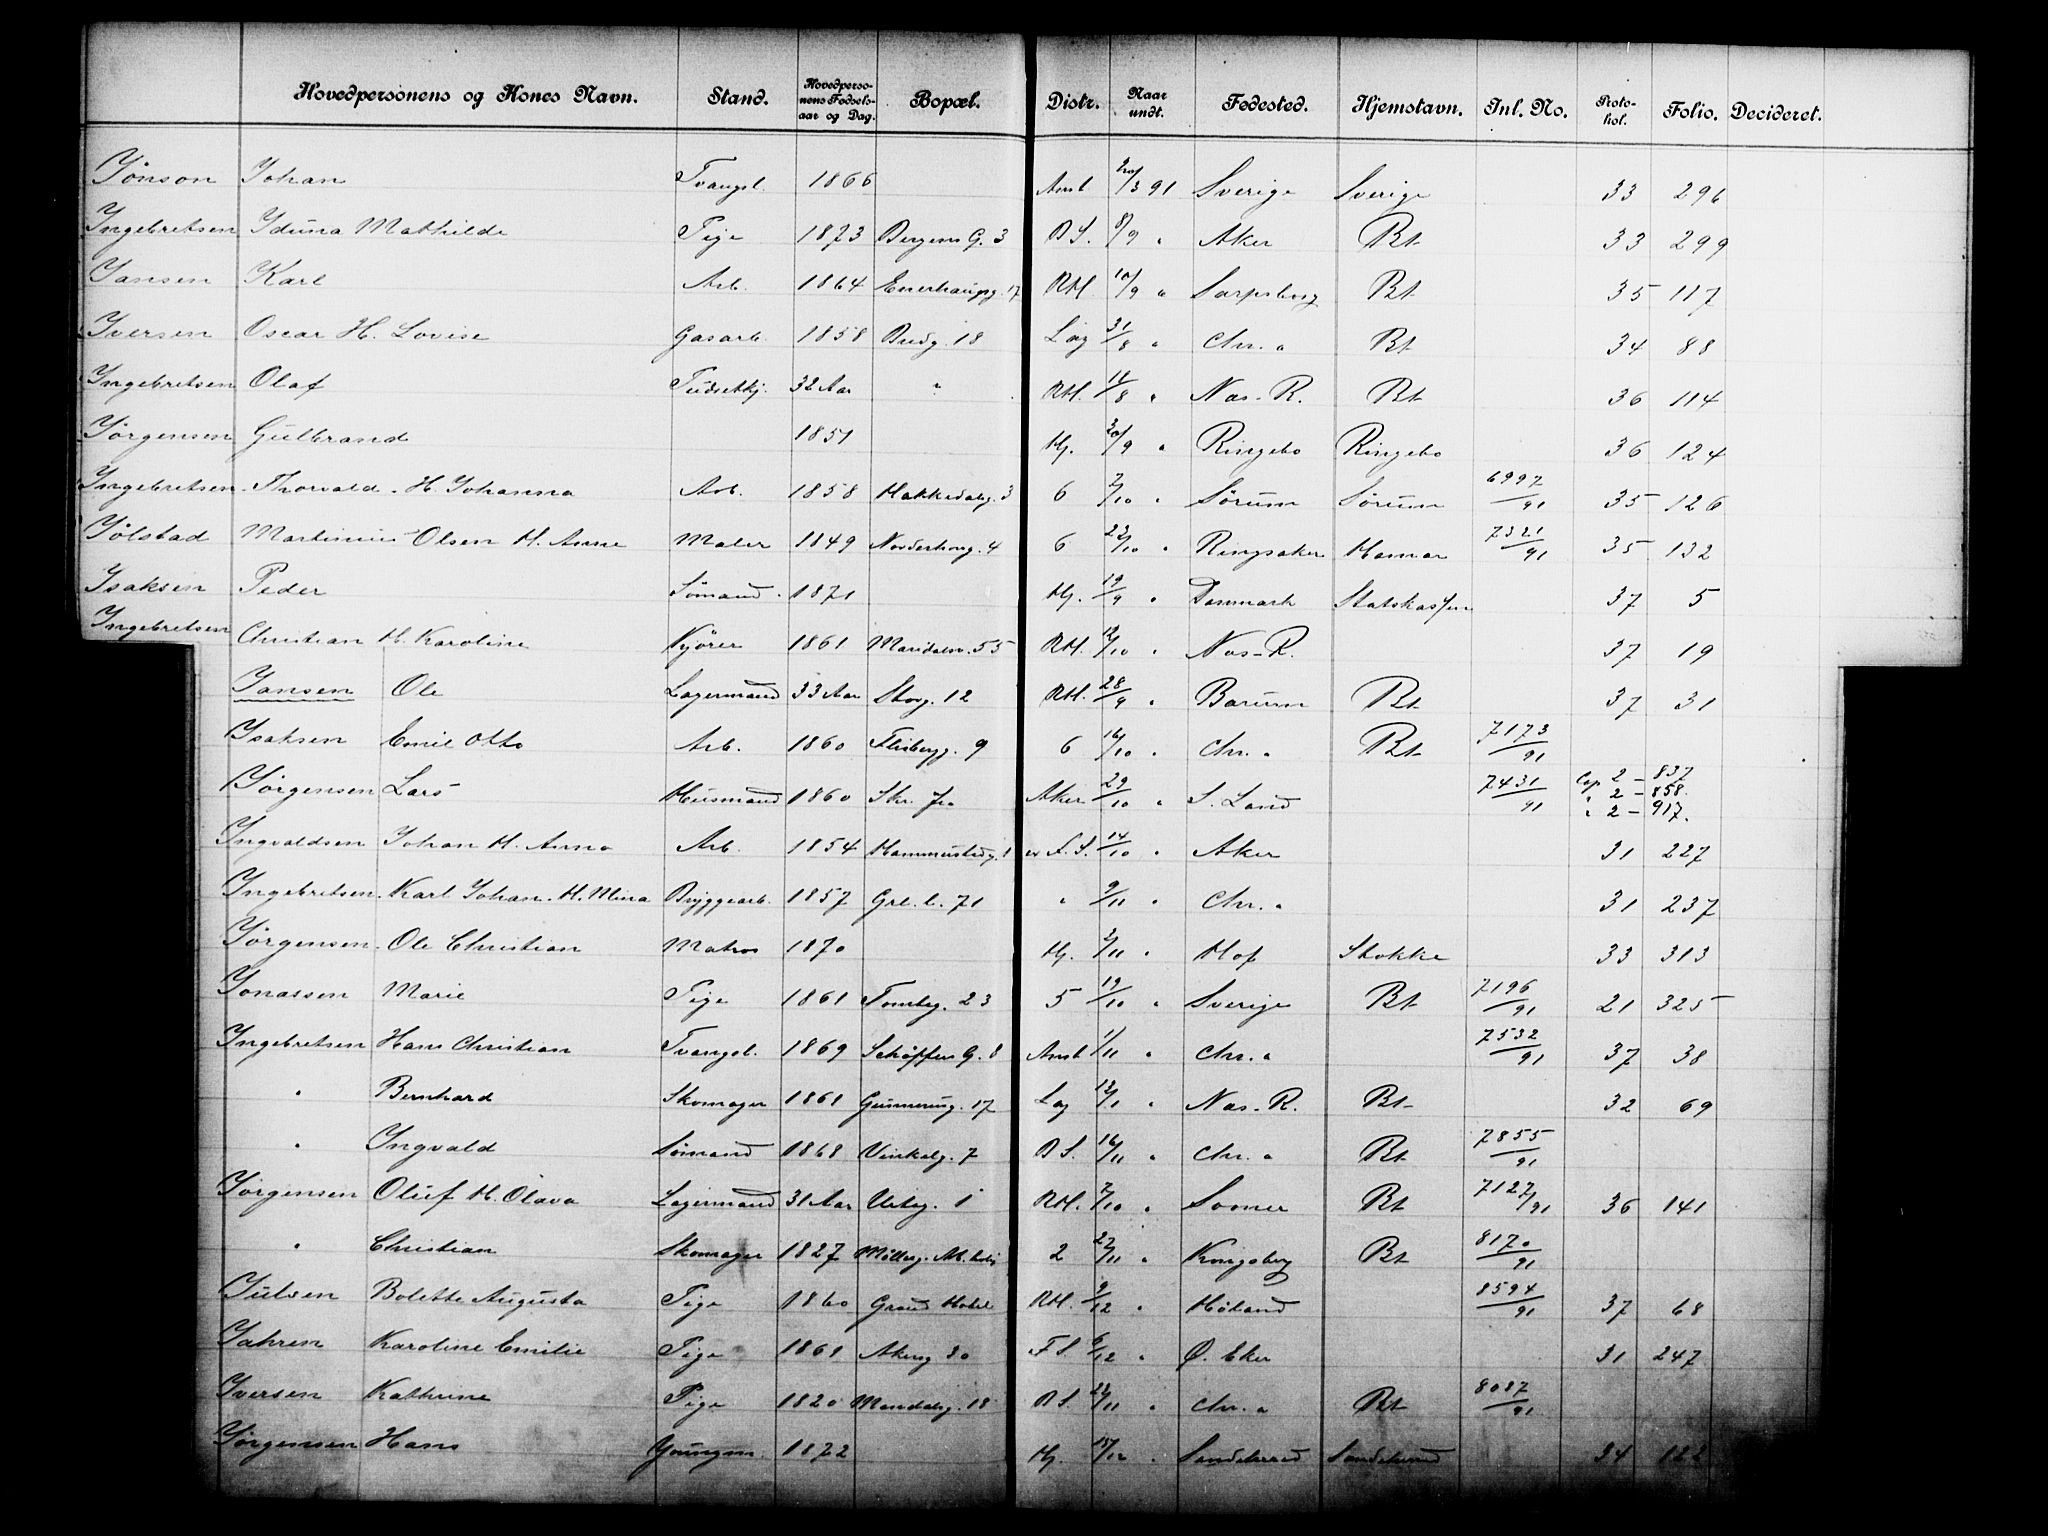 Hovedpersonens og Kones Navn. Stand. Hovedpersonens Fødselsaar og Dag. Bopæl. Distr. Naar undt. Fødested. Hjemstavn. Inl. No. Protokol. Folio. Decideret.
Jönson Johan Tvangsl. 1866 Amt 20/3 91 Sverige Sverige 33 296
Ingebretsen Iduna Mathilde Pige 1873 Bergens G. 3 B S. 8/9 " Aker Bt 33 299
Jansen Karl Arb. 1864 Enerhaugsg. 17 RH. 10/9 " Sarpsborg Bt 35 117
Iversen Oscar H. Lovise Gasarb. 1858 Bredg. 18 Lag 31/8 " Chr. a Bt 34 88
Ingebretsen Olaf 32 Aar " RH. 11/8 " Næs-R. Bt 36 114
Jørgensen Gulbrand 1851 Hj. 30/9 " Ringebo Ringebo 36 124
Ingebretsen Thorvald. H. Johanna Arb. 1858 Hakkedalsg. 3 6 2/10 " Sørum Sørum 6997/91 35 126
Jølstad Martinius Olsen H. Anne Maler 1849 Norderhovg. 4 6 22/10 " Ringsaker Hamar 7321/91 35 132
Isaksen Peder Sømand 1871 Hj. 19/9 " Danmark Statskassen 37 5
Ingebretsen Christian H. Karoline Kjører 1861 Maridalsv. 55 RH. 12/10 " Næs-R. 37 19
Jansen Ole Lagermand 33 Aar Storg. 12 RH. 28/9 " Bærum Bt 37 31
Isaksen Emil Otto Arb. 1860 Flisbergg. 9 6 16/10 " Chr. a Bt 7173/91
Jørgensen Lars Husmand 1860 Aker 29/10 " S. Land 7431/91 Cop 2 - 837
" 2 - 858.
" 2 - 917.
Ingvaldsen Johan H. Anna Arb. 1854 Hammerstadg. 1 14/10 " Aker 31 227
Ingebretsen Karl Johan. H. Mina Bryggearb. 1857 Grl. l. 71 " 9/11 " Chr. a 31 237
Jørgensen Ole Christian Matros 1870 Hj. 2/11 " Hof Stokke 33 313
Jonassen Marie Pige 1861 Tomteg. 23 5 19/10 " Sverige Bt 7196/91 21 325
Ingebretsen Hans Christian Tvangsl. 1869 Schøffers G. 8 Amt 1/11 " Chr. a 7532/91 37 38
" Bernhard Skomager 1861 Gunnerusg. 17 Lag " Næs-R. Bt 32 69
" Ingvald Sømand 1868 Vinkelg. 7 B S. 16/11 " Chr. a Bt 7855/91
Jørgensen Oluf H. Olava Lagermand 31 Aar Urteg. 1 RH. 2/10 " Soner Bt 7127/91 36 141
" Christian Skomager 1827 Møllerg. 2 27/11 " Kongsberg Bt 8170/91
Julsen Bolette Augusta Pige 1860 Grand Hotel RH. 9/12 " Høland 8594/91 37 68
Jahren Karoline Emilie Pige 1861 Akersg 30 F S. 6/12 " Ø. Eker 31 247
Iversen Kathrine Pige 1820 Mandalsg. 18 B S. 23/11 " Chr. a Bt 8087/91
Jørgensen Hans Youngm. 1872 Hj. 15/12 " Sandeherred Sandeherred 34 122